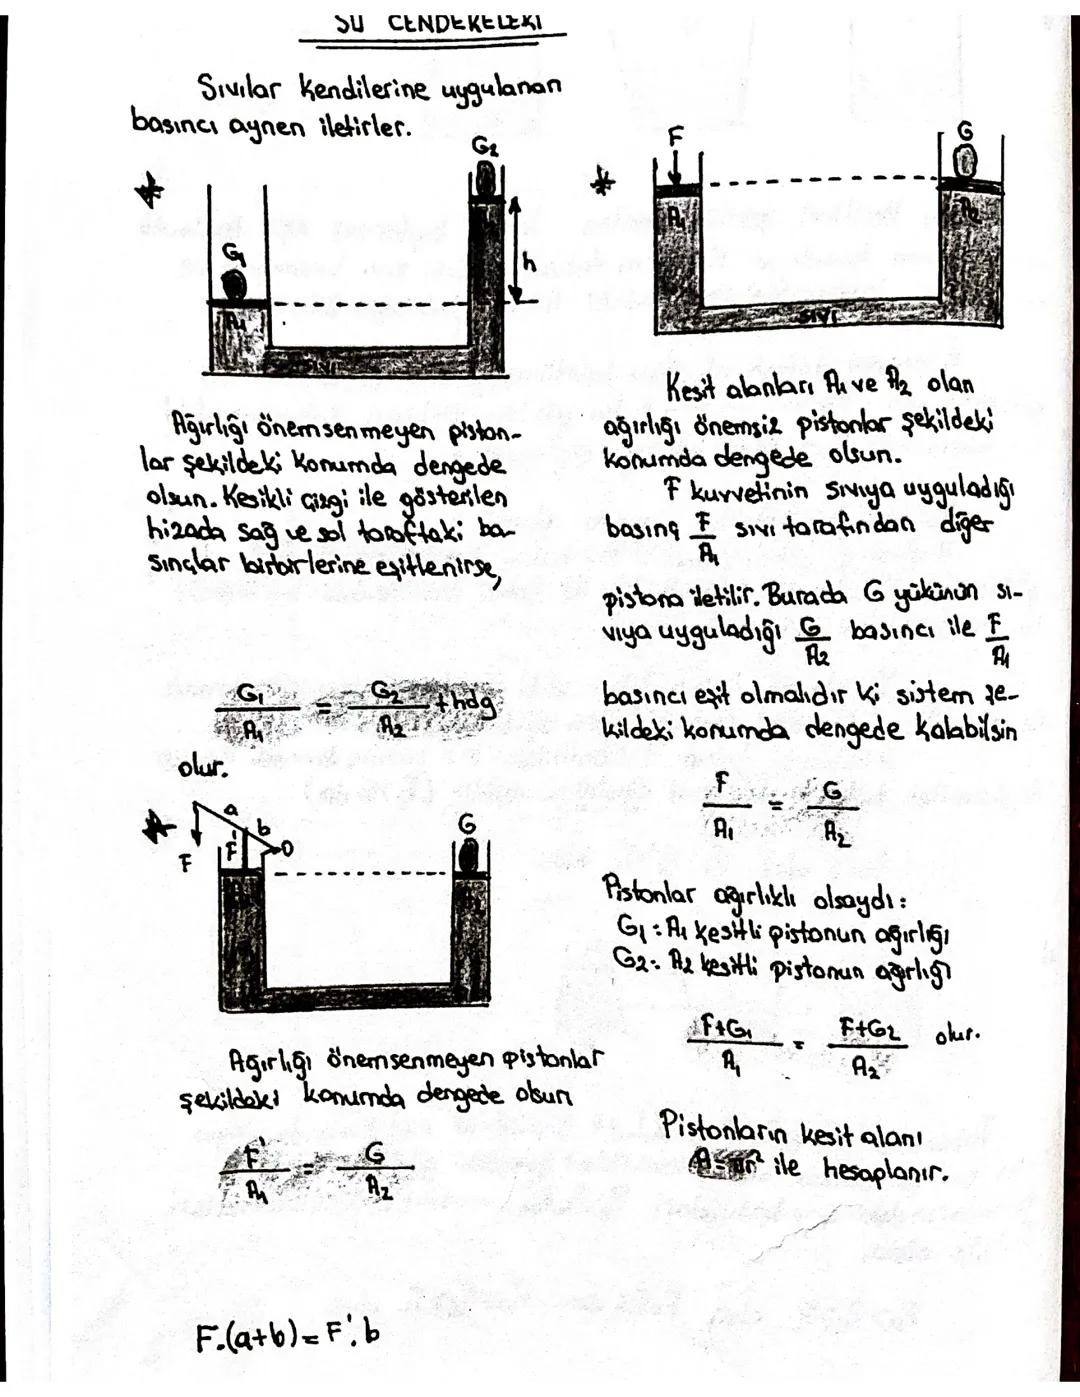 SU CENDERELERİ
Sıvılar kendilerine uygulanan
basıncı aynen iletirler.
G₂
h
G₁
A₁
SIVI
Ağırlığı önemsenmeyen piston-
lar şekildeki konumda dengede
olsun. Kesikli çizgi ile gösterilen
hizada sağ ve sol taraftaki ba-
sınçlar birbirlerine eşitlenirse,
G₁/A₁ = G₂/A₂ + hdg
olur.
a
b
F
F'
O
G
Ağırlığı önemsenmeyen pistonlar
şekildeki konumda dengede olsun
F'/A₁ = G/A₂
F.(a+b)=F'.b
F
G
A₁
A₂
SIVI
Kesit alanları A₁ ve A₂ olan
ağırlığı önemsiz pistonlar şekildeki
konumda dengede olsun.
F kuvvetinin sıvıya uyguladığı
basınç F/A₁ sıvı tarafından diğer
pistona iletilir. Burada G yükünün sı-
vıya uyguladığı G/A₂ basıncı ile F/A₁
basıncı eşit olmalıdır ki sistem şe-
kildeki konumda dengede kalabilsin
F/A₁ = G/A₂
Pistonlar ağırlıklı olsaydı:
G₁: A₁ kesitli pistonun ağırlığı
G₂: A₂ kesitli pistonun ağırlığı
F+G₁/A₁ = F+G₂/A₂ olur.
Pistonların kesit alanı
A=πr² ile hesaplanır.